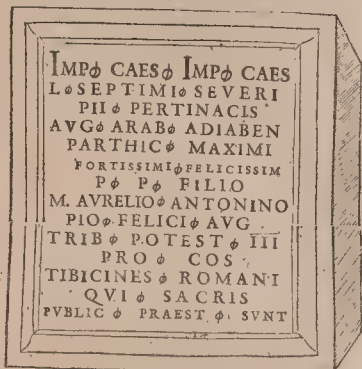 IMPϕ CAESϕ IMPϕ CAES
LϕSEPTIMIϕSEVERI
PIIϕPERTINACIS
AVGϕARABϕADIABEN
PARTHICϕMAXIMI
FORTISSIMIϕFELICISSIM
PϕPϕFILIO
M. AVRELIOϕANTONINO
PIOϕFELICIϕAVG
TRIBϕPOTESTϕIII
PROϕCOS
TIBICINESϕROMANI
QVIϕSACRIS
PVBLICϕPRAESTϕSVNT